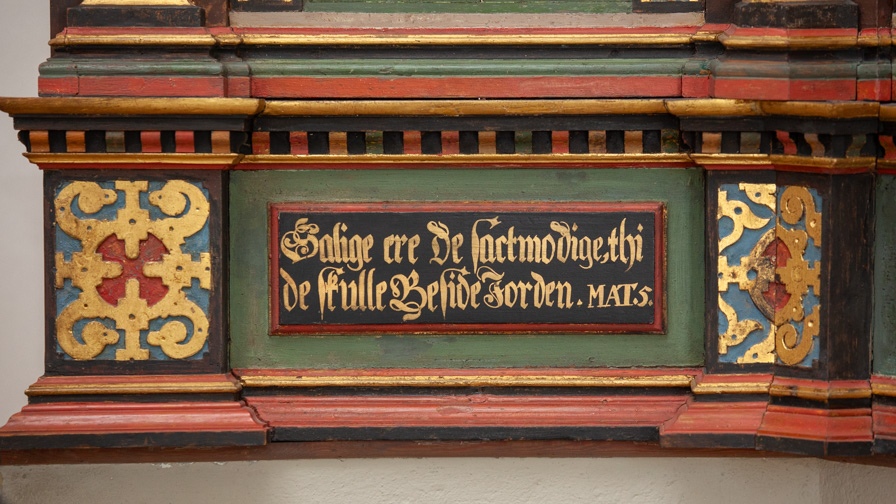 Salige ere De sactmodige, thi
de skulle Beside Jorden. MAT5.